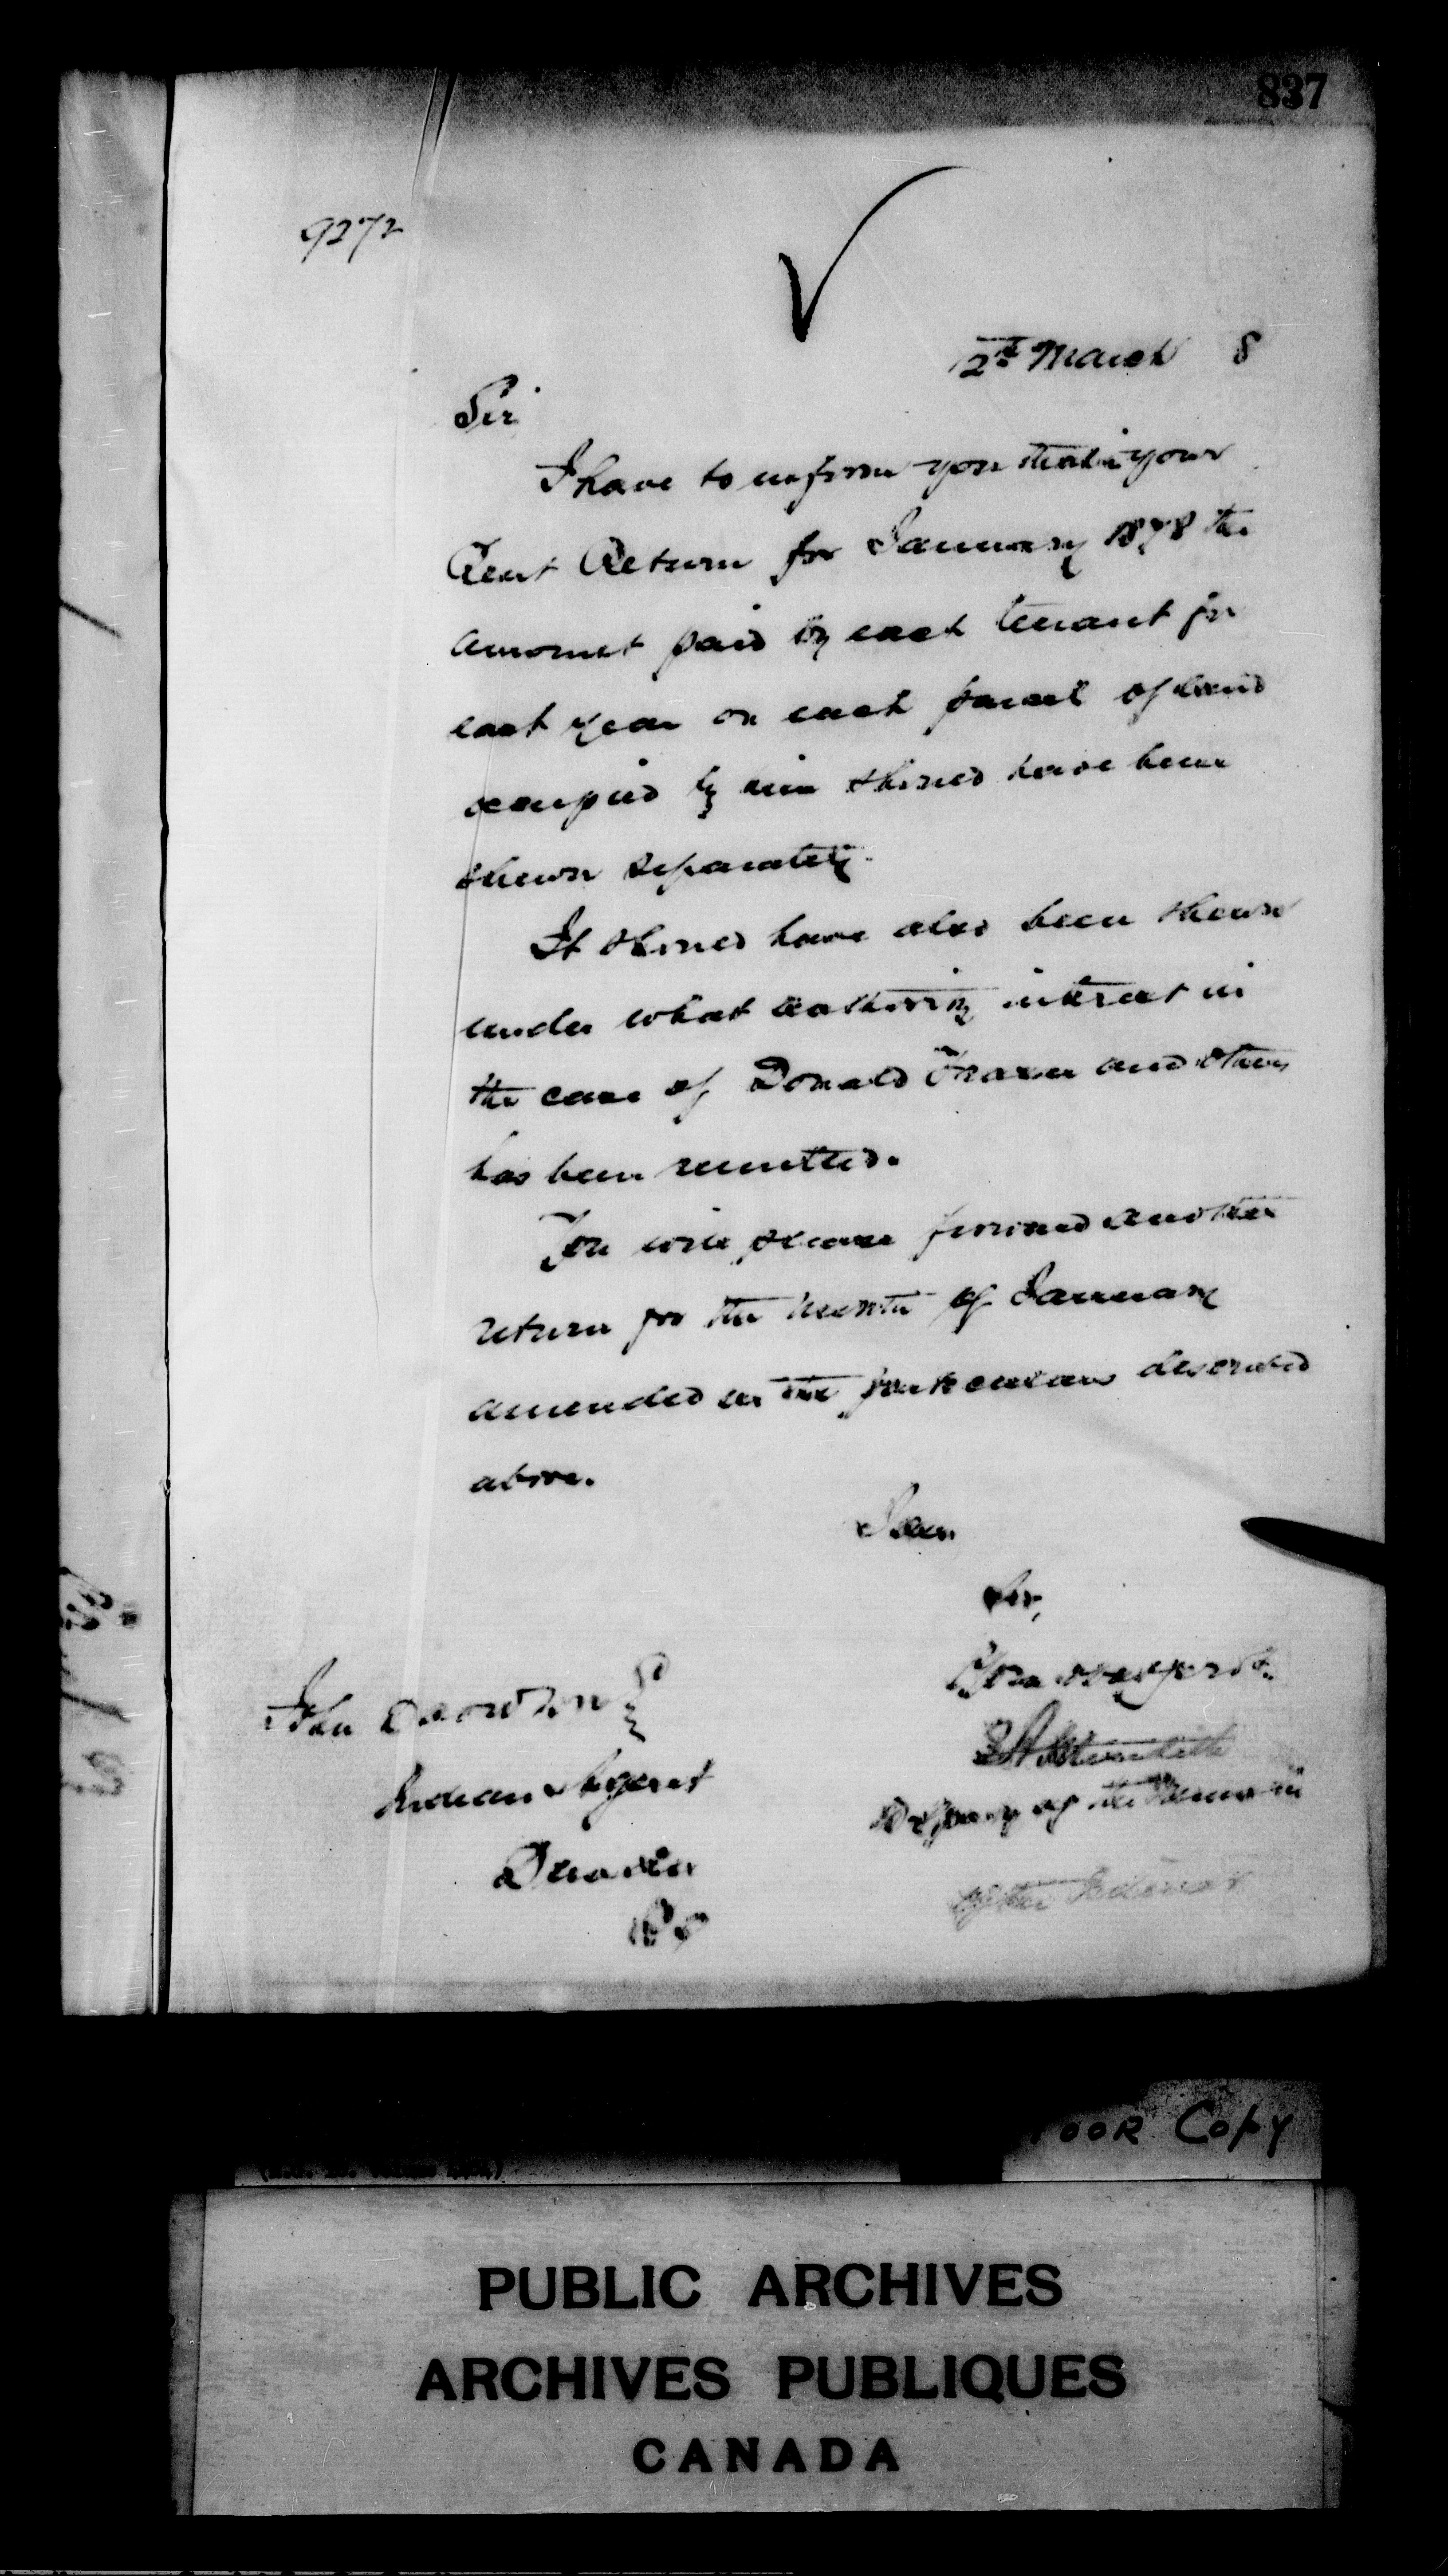 837
9272
12th March 8
Sir
I have to inform you that in your
Rent Return for January 1878 the
amount paid by each tenant for
each year on each parcel of land
occupied by him should have been
shewn separately.
It should have also been shewn
under what authority interest in
the case of Donald Fraser and others
has been remitted.
You will please forward another
return for the month of January
amended in the particulars described
above.
I am
Sir,
Your obedt servt.
Deputy of the Minister
of the Interior
John Davidson
Indian Agent
Dundee
PQ
POOR COPY
PUBLIC ARCHIVES
ARCHIVES PUBLIQUES
CANADA